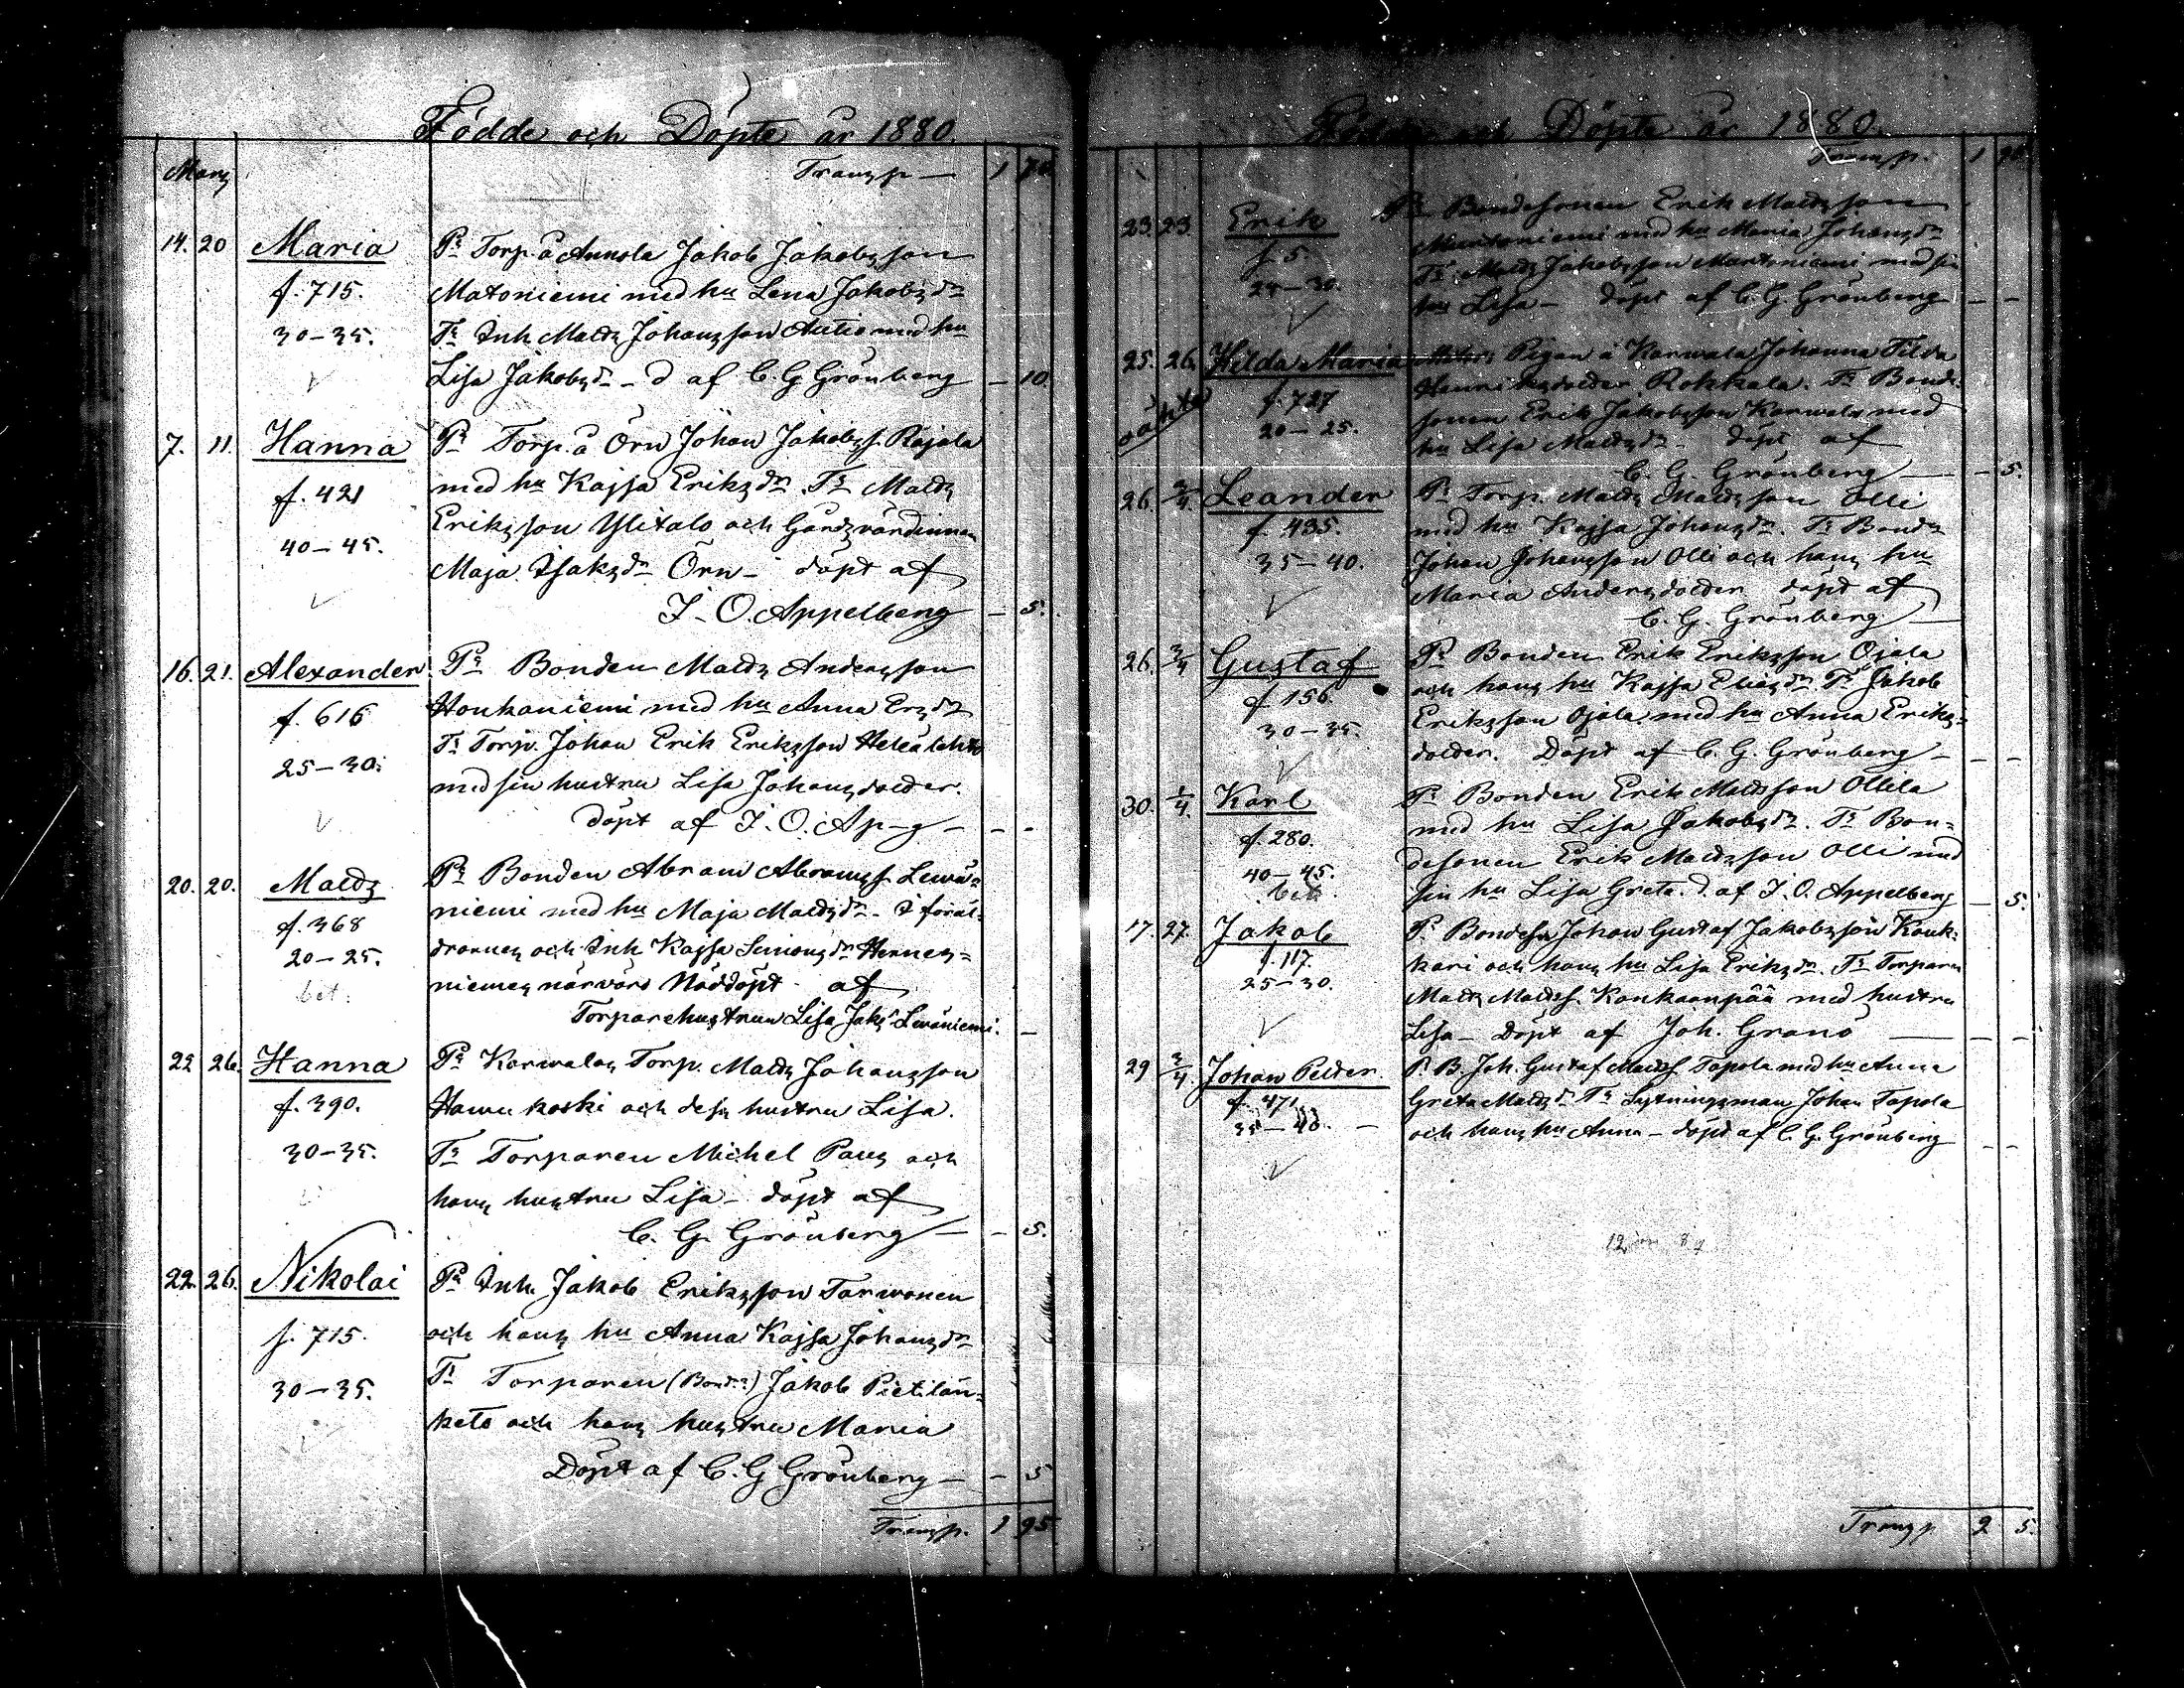 Födde och Döpte år 1880.
Mars
Transp — 1 70.
14. 20 Maria Pr Torp. å Annola Jakob Jakobsson
f. 715. Matoniemi med hu Lena Jakobsdr
30–35. Tr Inh Matts Johansson Autio med hu
Lisa Jakobsdr – d af C. G Grönberg – 10.
7. 11. Hanna Pr Torp. å Örn Johan Jakobss. Rajala
f. 421 med hu Kajsa Eriksdr. Tr Matts
Eriksson Ylitalo och Gårdsvärdinnan
40–45. Maja Isaksdr Örn – döpt af
J. O. Appelberg – 5.
16. 21. Alexander Pr Bonden Matts Andersson
f. 616 Honkaniemi med hu Anna Ersdr
Tr Torp. Johan Erik Eriksson
25–30. med sin hustru Lisa Johansdotter.
döpt af J. O. Ap–g – – -
20. 20. Matts Pr Bonden Abram Abramss. Lewä=
f. 368 niemi med hu Maja Mattsdr – I föräl=
20–25. drarnes och Inh Kajsa Simonsdr Hernes=
bet. niemes närvaro Nöddöpt af
Torparehustrun Lisa Jaks Lewäniemi. –
22 26. Hanna Pr Karwalas Torp. Matts Johansson
f. 390. koski och dess hustru Lisa.
30–35. Tr Torparen Michel Pass och
hans hustru Lisa – döpt af
C. G. Grönberg – – 5.
22. 26. Nikolai Pr Inh. Jakob Eriksson Tarwonen
f. 715. och hans hu Anna Kajsa Johansdr
30–35. Tr Torparen (Bond.) Jakob Pietilän=
keto och hans hustru Maria
Döpt af C. G Grönberg – – 5
Transp. 1 95.
Födde och Döpte år 1880.
Transp. 1 95
23. 23 Erik Pr Bondesonen Erik Mattsson
f. 5. Mantoniemi med hu Maria Johansdr
Tr Matts Jakobsson Mantoniemi med sin
25–30. hu Lisa – döpt af C. G Grönberg – –
25. 26. Hilda Maria Moder: Pigan å Karwala Johanna Tilda
oäkta f. 727 Henriksdotter Rokkala. Tr Bonde-
20–25. sonen Erik Jakobsson Karwala med
hu Lisa Mattsdr – döpt af
C. G. Grönberg – – 5.
26. 2/4. Leander Pr Torp. Matts Mattsson Olli
f. 435. med hu Kajsa Johansdr. Tr Bonden
35–40. Johan Johansson Olli och hans hu
Maria Andersdotter döpt af
C. G. Grönberg –
26. 3/4 Gustaf Pr Bonden Erik Eriksson Ojala
f 156. och hans hu Kajsa Eliesdr. Tr Jakob
30–35. Eriksson Ojala med hu Anna Eriks=
dotter. Döpt af C. G. Grönberg – – –
30. 1/4. Karl Pr Bonden Erik Mattsson Ollila
f. 280. med hu Lisa Jakobsdr. Tr Bon=
40–45. desonen Erik Mattsson Olli med
bet. sin hu Lisa Greta. d. af J. O. Appelberg – 5.
17. 27. Jakob Pr Bondesn Johan Gustaf Jakobsson Kauk=
f. 117. kari och hans hu Lisa Eriksdr. Tr Torparen
25–30. Matts Mattss. Kankaanpää med hustru
Lisa – Döpt af Joh. Granö – – –
29 3/4. Johan Petter. P. B. Joh. Gustaf Mattss. Tapola med hu Anna
f. 471. Greta Mattsdr Tr Sytningsman Johan Tapola
och hans hu Anna – döpt af C. G. Grönberg – –
Transp 2 5.